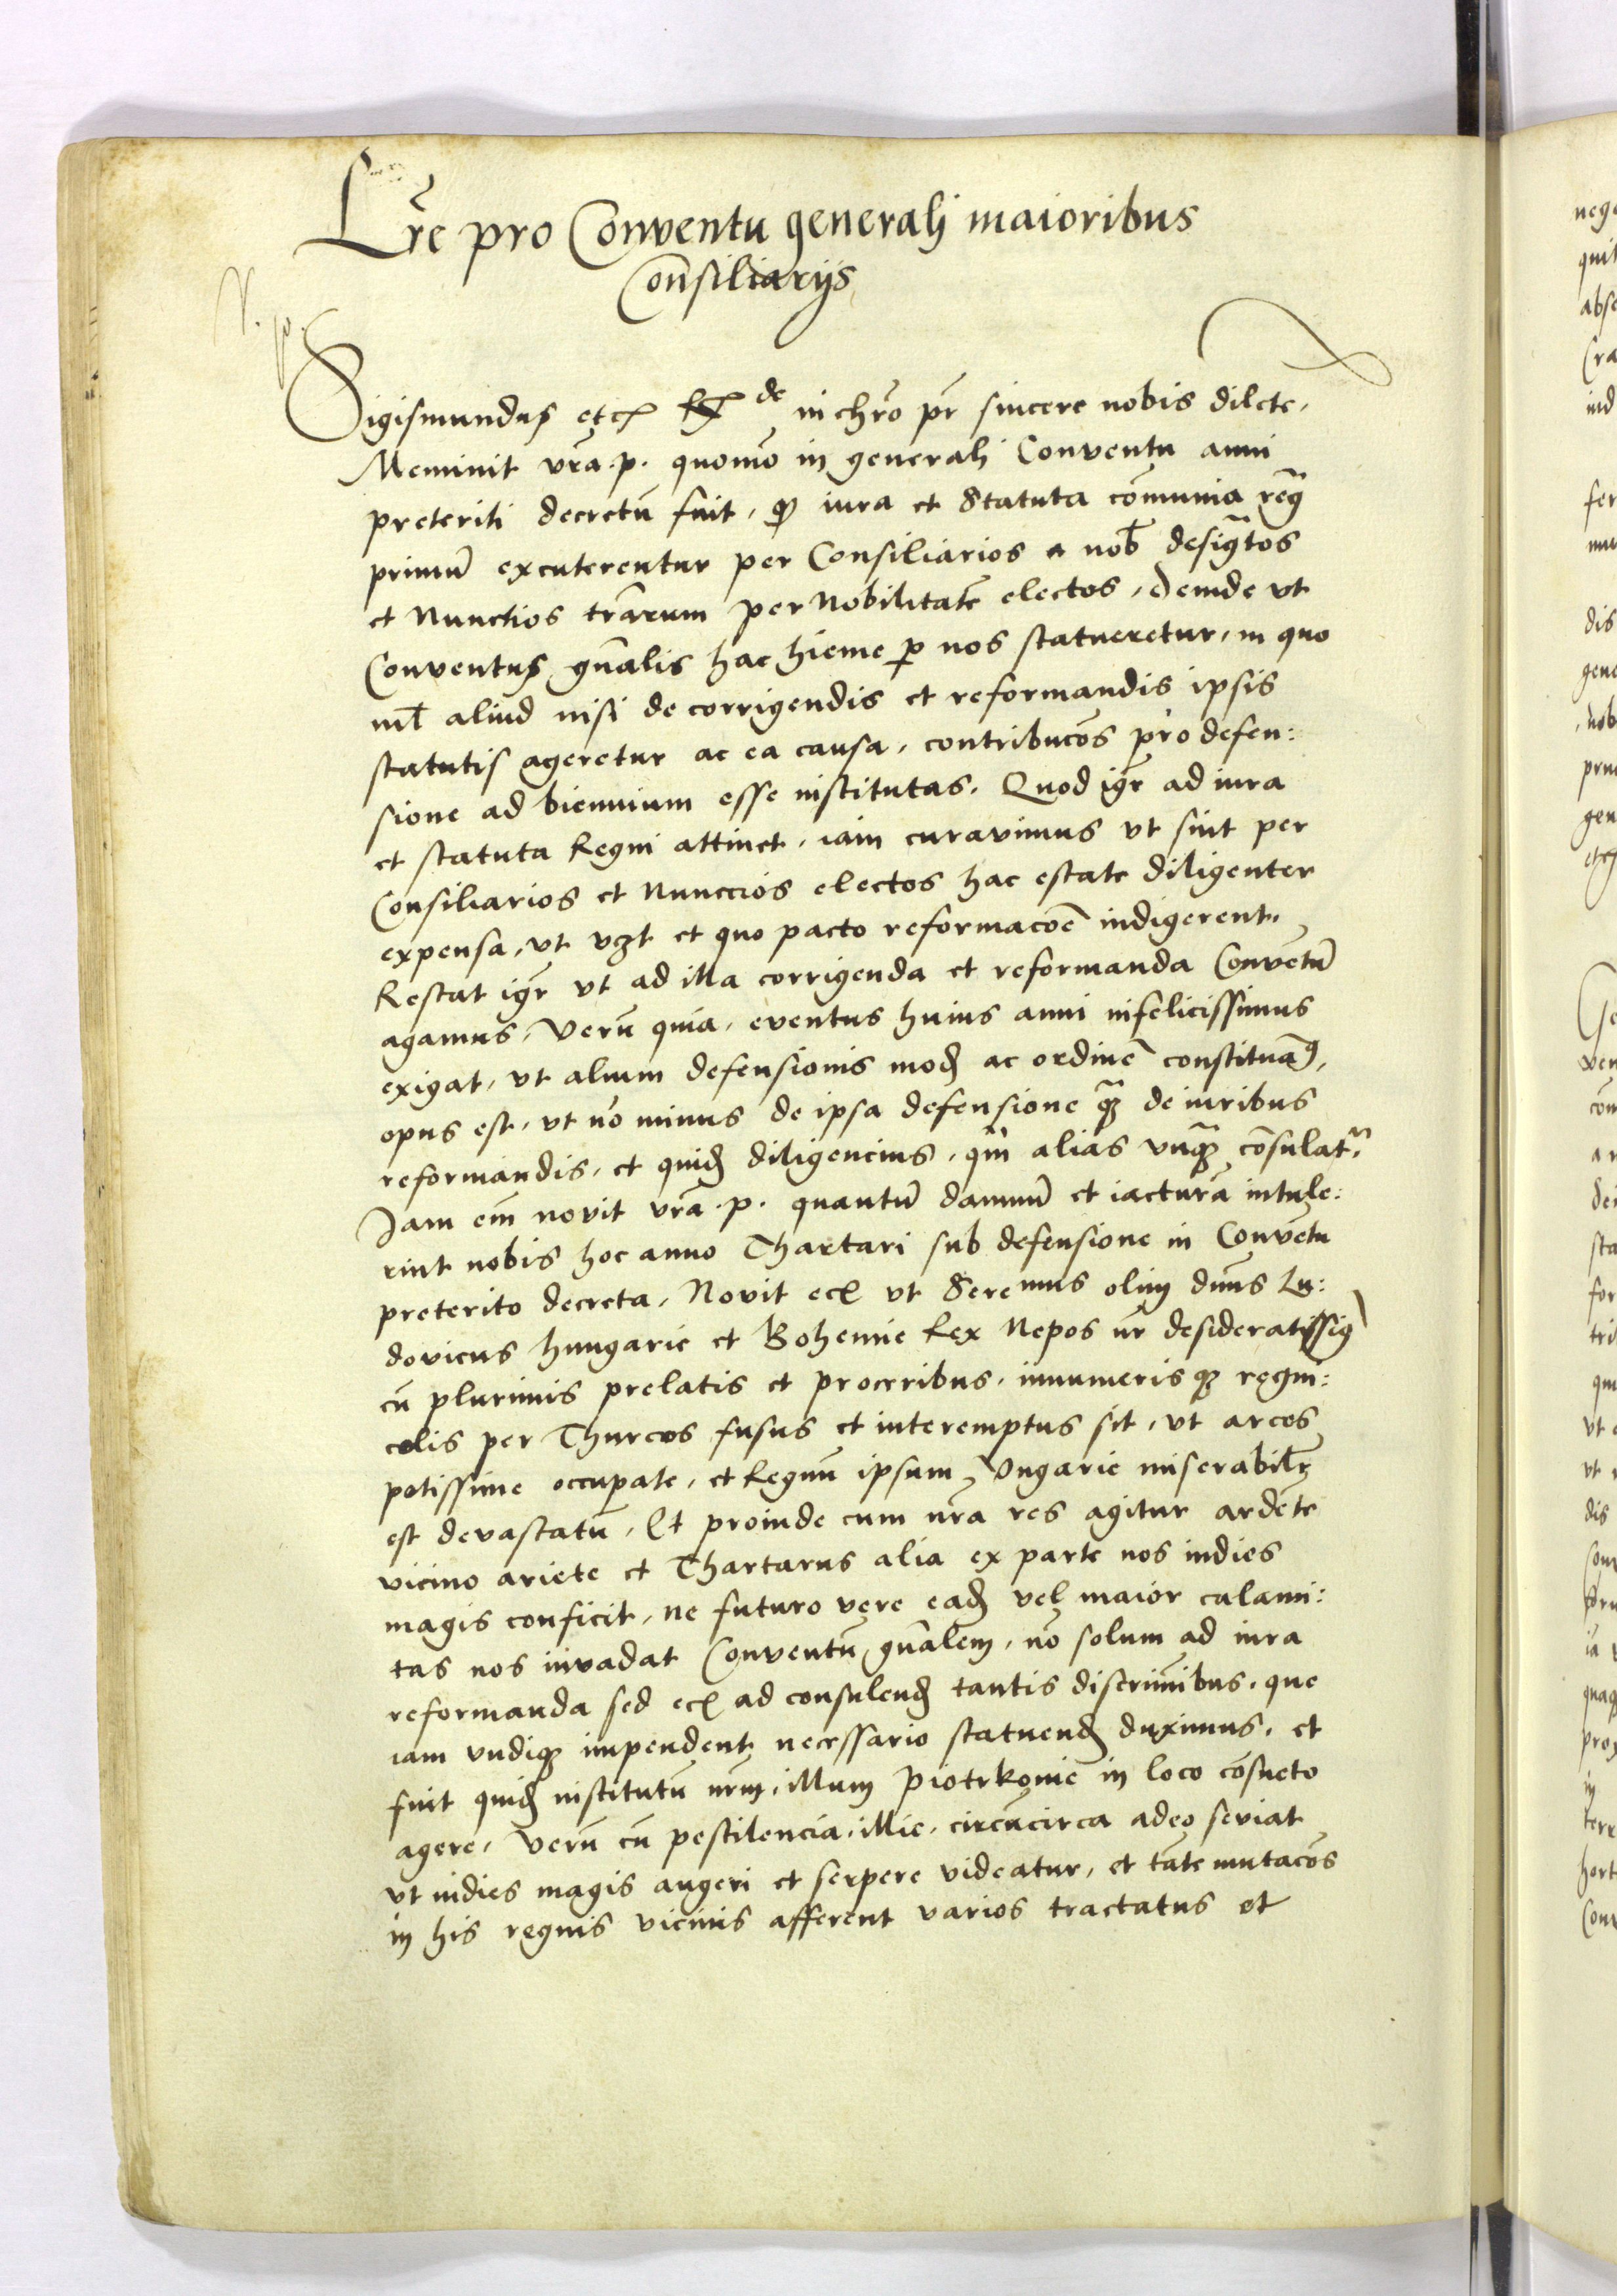 Lr̃e pro Conventu generalj maioribus
Consiliarijs
V. p.
Sigismundus etc̃ Rx̃ de in chr̃o pr̃ sincere nobis dilcte.
Meminit vr̃a .p. quomõ in generali Conventu anni
preteriti decretũ fuit, qp iura et Statuta cõmunia reg̃
primũ excuterentur per Consiliarios a nob̃ desig̃tos
et Nunctios tr̃arum per Nobilitatẽ electos, deinde vt
Conventus gñalis hac hieme p̱ nos statueretur, in quo
nil̃ aliud nisi de corrigendis et reformandis ipsis
statutis ageretur ac ea causa, contribucõs pro defen:
sione ad biennium esse institutas. Quod igr̃ ad iura
et statuta Regni attinet, iam curavimus vt sint per
Consiliarios et Nunccios electos hac estate diligenter
expensa, vt vꝫt et quo pacto reformacoẽ indigerent.
Restat igr̃ vt ad illa corrigenda et reformanda Convẽtũ
agamus, Verũ quia, eventus huius anni infelicissimus
exigat, vt alium defensionis mod̃ ac ordinẽ constituam9,
opus est, vt nõ minus de ipsa defensione qꝫ̃ de iuribus
reformandis, et quid̃ diligencius, qm̃ alias vnqꝫ̃ cõsulatr̃.
Iam em̃ novit vr̃a .p. quantũ damnũ et iacturã intule:
rint nobis hoc anno Thartari sub defensione in Convẽtu
preterito decreta, Novit ec̃ vt Serenmus olim dñus Lu:
dovicus hungarie et Bohemie Rex Nepos nr̃ desideratissig
cũ plurimis prelatis et proceribus, innumerisqꝫ regni:
colis per Thurcos fusus et interemptus sit, vt arces
potissime occupate, et Regnũ ipsum Vngarie miserabilr̃
est devastatũ, Et proinde cum nr̃a res agitur ardẽte
vicino ariete et Thartarus alia ex parte nos indies
magis conficit, ne futuro vere ead̃ vel maior calami:
tas nos invadat Conventũ gñalem, nõ solum ad iura
reformanda sed ec̃ ad consulend̃ tantis discrimĩbus, que
iam vndiqꝫ impendent necessario statuend̃ duximus, et
fuit quid̃ institutũ nr̃m, illum Piotrkovie in loco cõsueto
agere, Verũ cũ pestilencia, illic, circũcirca adeo seviat
vt indies magis augeri et serpere videatur, et tãte mutacõs
in his regnis vicinis afferent varios tractatus et